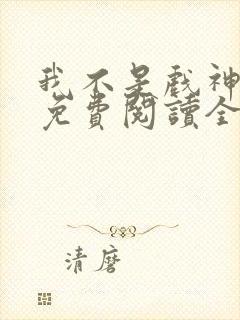 我不是戲神
免費閱讀全
清麿